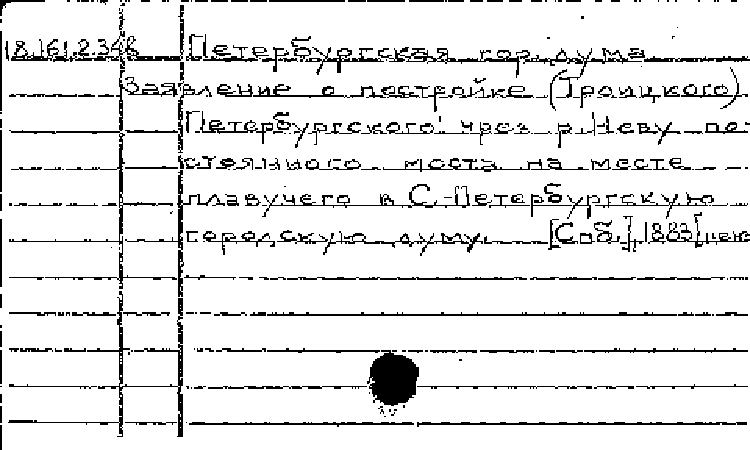 18.161.2.348 Петербургская гор. дума
Заявление о постройке (Троицкого)
Петербургского чрез р. Неву пос
стоянного моста на месте
плавучего в С.-Петербургскую
городскую думу. [Спб.], 1883 [цен